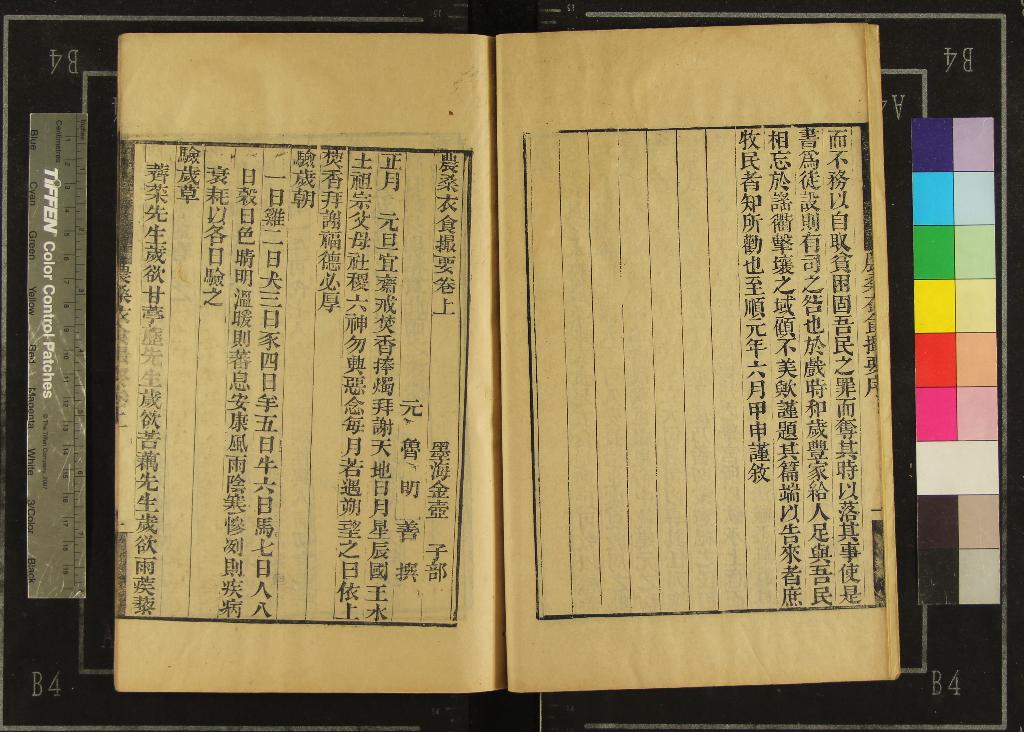 而不務以自取貧困固吾民之罪而奪其時以落其事使是
書爲徒設則有司之咎也於戲時和歲豐家給人足與吾民
相忘於謠衢擊壤之域顧不美歟謹題其篇端以告來者庶
牧民者知所勸也至順元年六月甲申謹敘
農桑衣食撮要卷上
墨海金壺 子部
元 魯 明 善 撰
正月 元旦宜齋戒焚香捧燭拜謝天地日月星辰國王水
土祖宗父母社稷六神勿興惡念每月若遇朔望之日依上
焚香拜謝福德必厚
驗歲朝
一日雞二日犬三日豕四日羊五日牛六日馬七日人八
日穀日色晴明溫暖則蕃息安康風雨陰寒慘冽則疾病
衰耗以各日驗之
驗歲草
薺菜先生歲欲甘葶藶先生歲欲苦藕先生歲欲雨蒺藜
B4
B4
B4
B4
TIFFEN Color Control Patches
© The Tiffen Company, 2007
Inches
Centimetres
Blue
Cyan
Green
Yellow
Red
Magenta
White
3/Color
Black